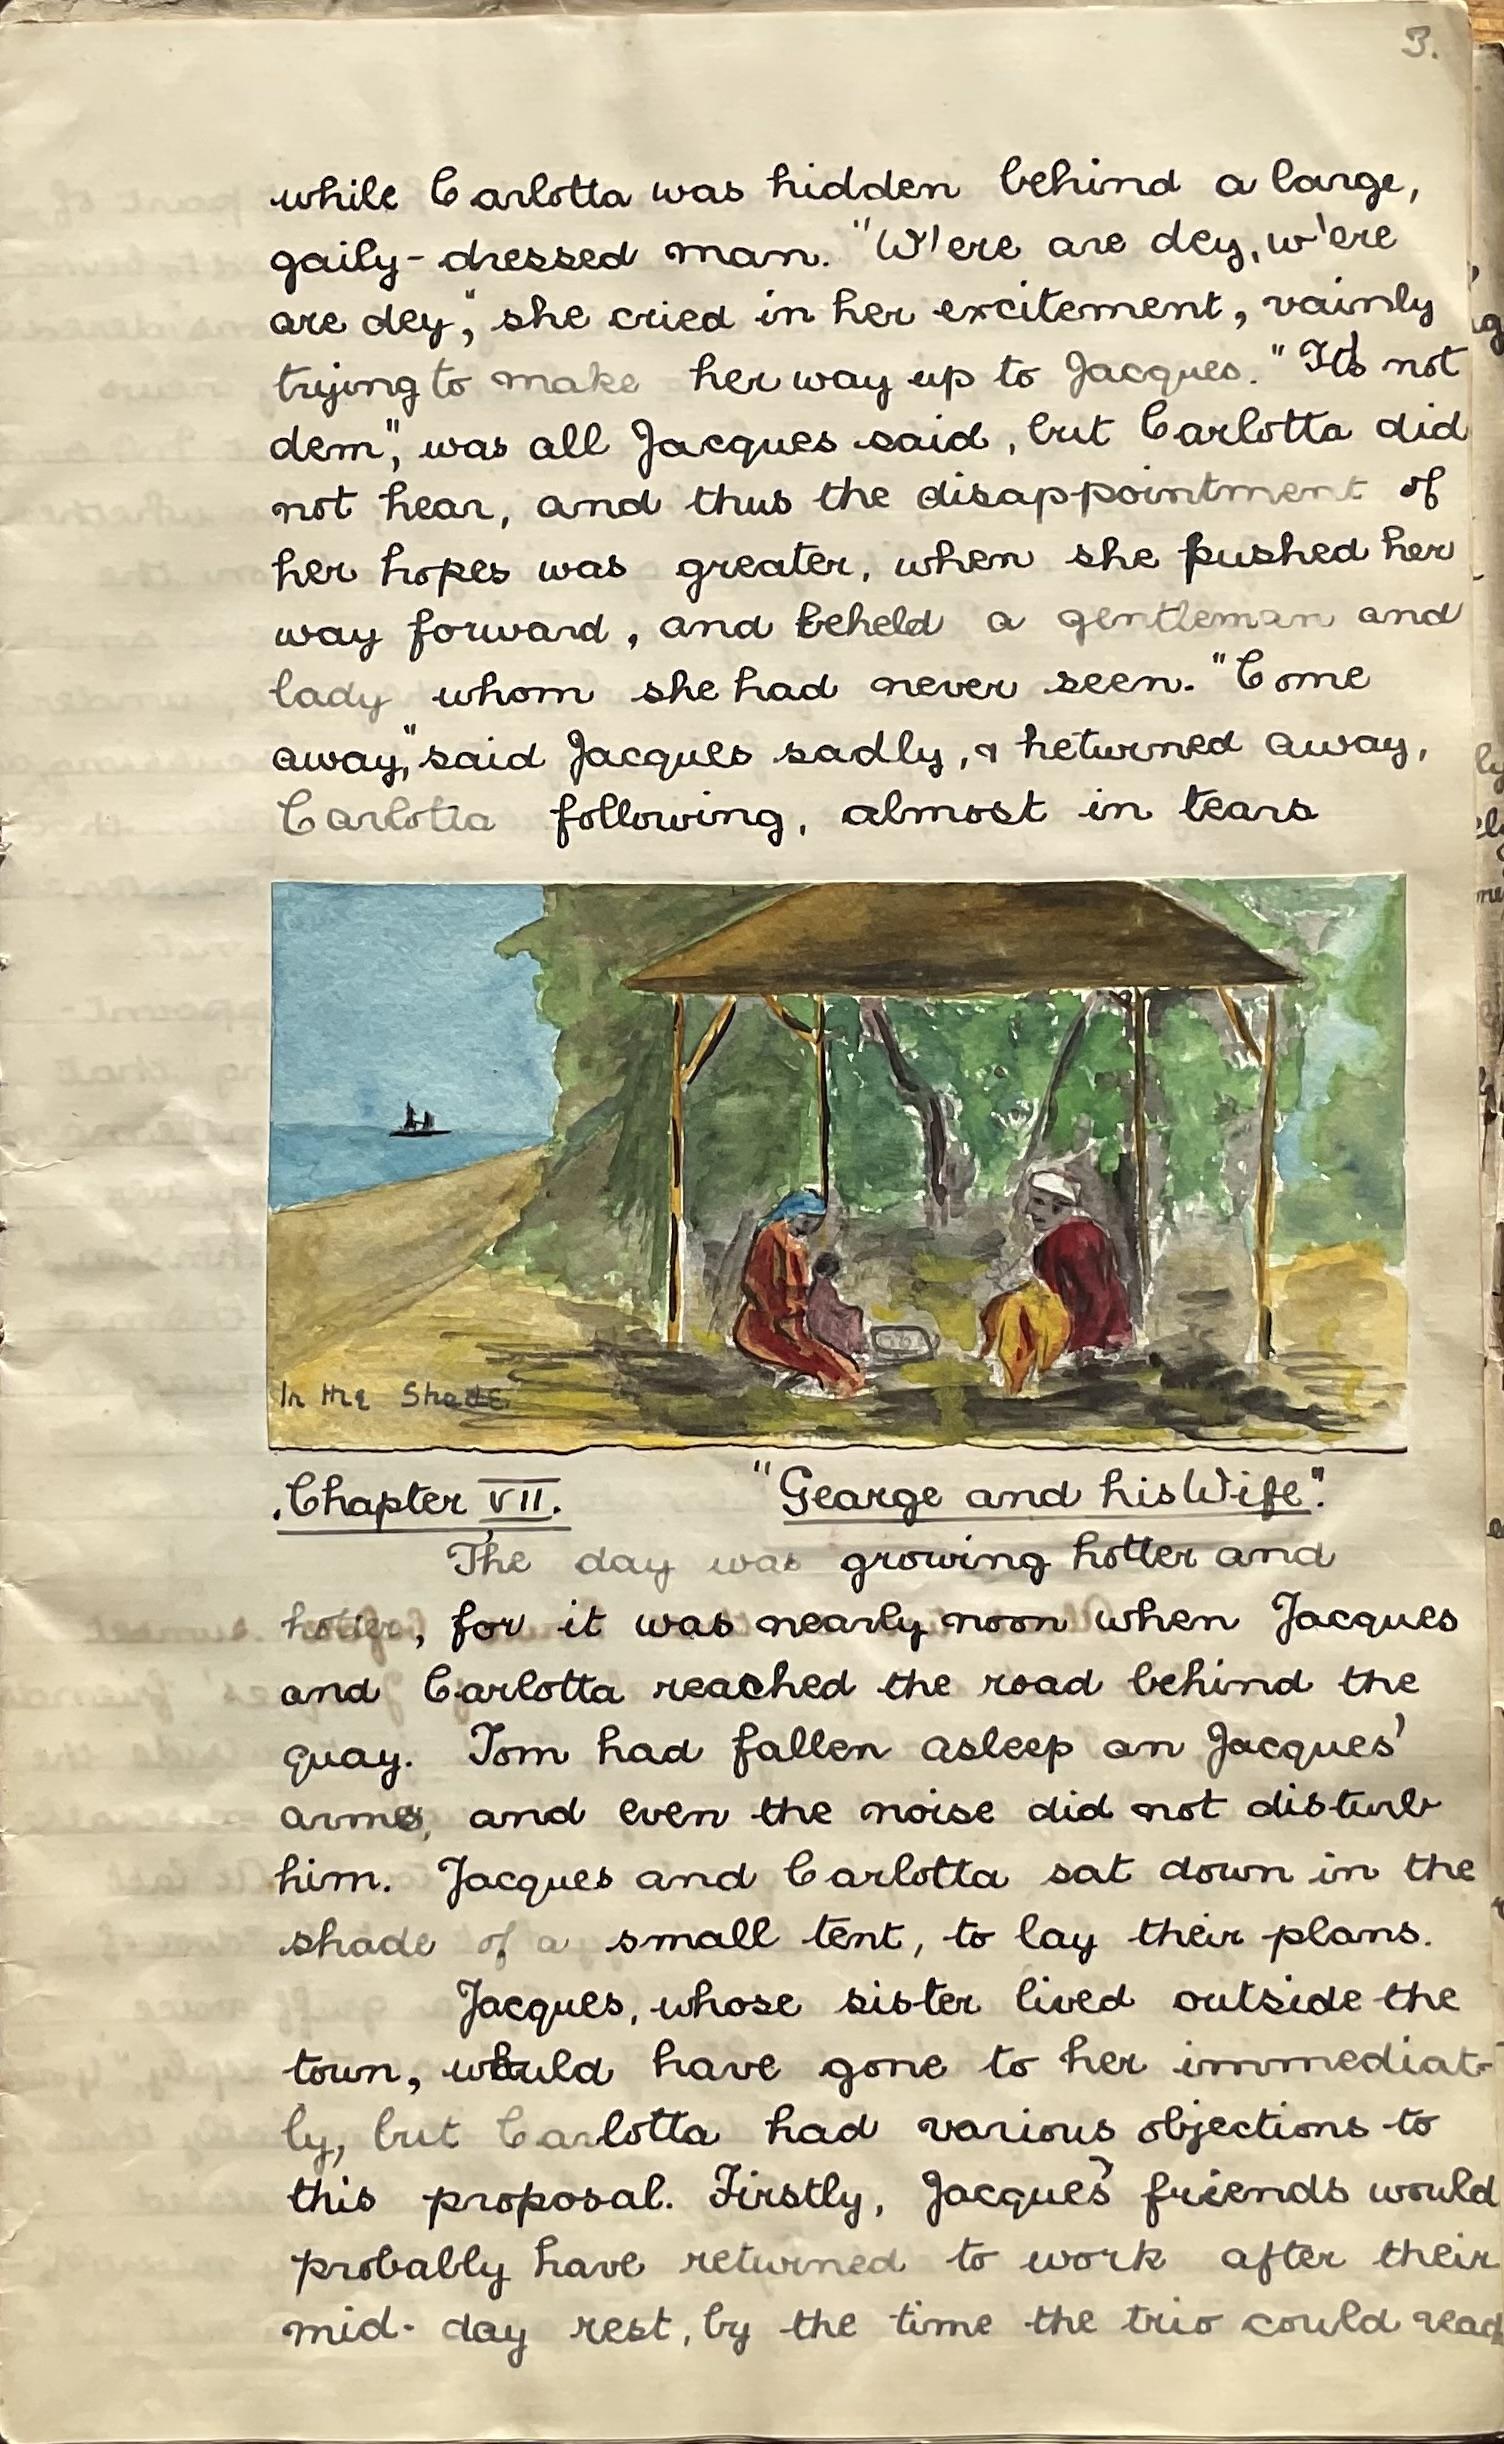 3.
while Carlotta was hidden behind a large,
gaily-dressed man. "W'ere are dey, w'ere
are dey," she cried in her excitement, vainly
trying to make her way up to Jacques. "It's not
dem", was all Jacques said, but Carlotta did
not hear, and thus the disappointment of
her hopes was greater, when she pushed her
way forward, and beheld a gentleman and
lady whom she had never seen. "Come
away," said Jacques sadly, & he turned away,
Carlotta following, almost in tears
In the Shade
Chapter VII. "George and his Wife".
The day was growing hotter and
hotter, for it was nearly noon when Jacques
and Carlotta reached the road behind the
quay. Tom had fallen asleep on Jacques'
arms, and even the noise did not disturb
him. Jacques and Carlotta sat down in the
shade of a small tent, to lay their plans.
Jacques, whose sister lived outside the
town, would have gone to her immediat-
ly, but Carlotta had various objections to
this proposal. Firstly, Jacques' friends would
probably have returned to work after their
mid-day rest, by the time the trio could reach